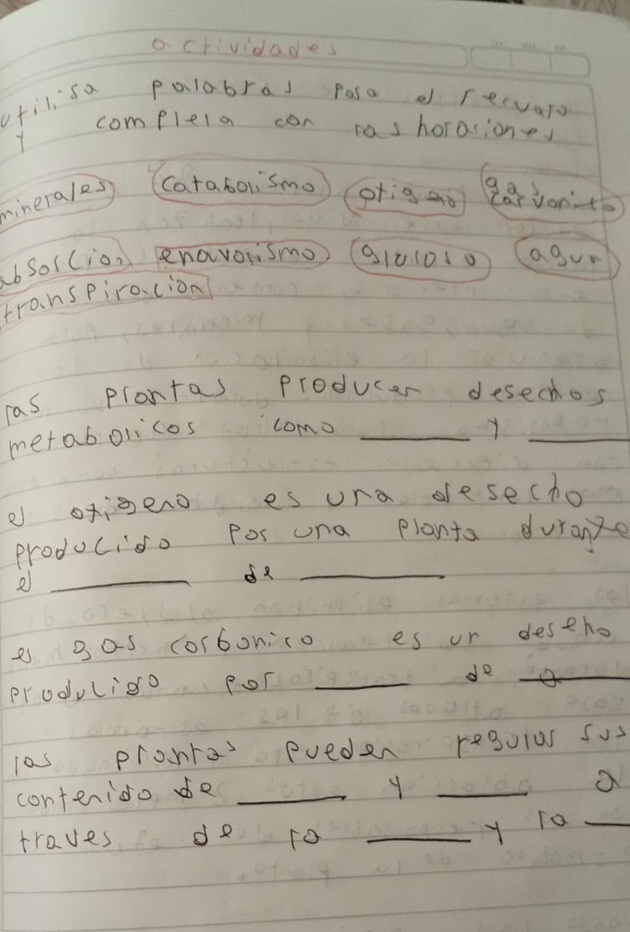 actividades
utilisa palabras para el recuaro
y complela con las horasiones
minerales catabolismo oxigeno gas carvonito
absorcion enavolismo glucoso agua
transpiracion
las plantas producen desechos
metabolicos como ______ y ______
el oxigeno es una desecho
producido por una planta durante
el ______ de ______
el gas carbonico es un deseho
producido por ______ de a______
las plantas pueden regular sus
contenido de ______ y ______ a
traves de la ______ y la ______